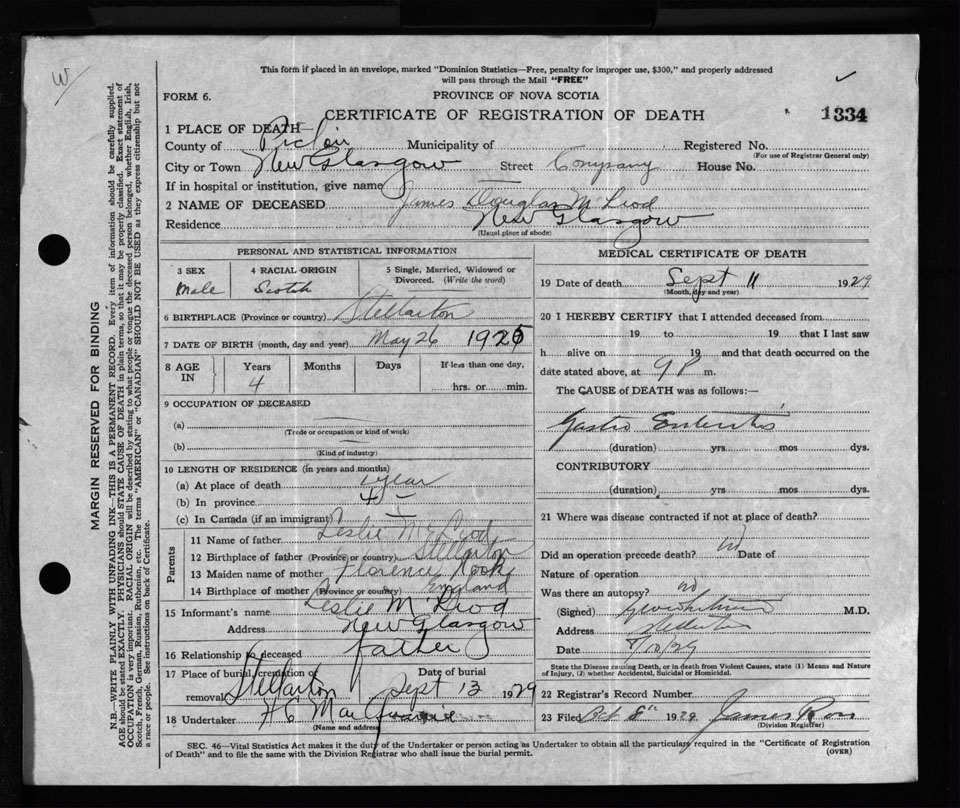 W
This form if placed in an envelope, marked "Dominion Statistics—Free, penalty for improper use, $300," and properly addressed
will pass through the Mail "FREE"
FORM 6.
PROVINCE OF NOVA SCOTIA
CERTIFICATE OF REGISTRATION OF DEATH
1334
1 PLACE OF DEATH—
County of Pictou Municipality of Registered No.
(For use of Registrar General only)
City or Town New Glasgow Street Company House No.
If in hospital or institution, give name —
2 NAME OF DECEASED James Douglas McLeod
Residence New Glasgow
(Usual place of abode)
PERSONAL AND STATISTICAL INFORMATION
3 SEX Male
4 RACIAL ORIGIN Scotch
5 Single, Married, Widowed or Divorced. (Write the word)
6 BIRTHPLACE (Province or country) Stellarton
7 DATE OF BIRTH (month, day and year) May 26 1925
8 AGE IN Years 4 Months Days If less than one day, hrs. or min.
9 OCCUPATION OF DECEASED
(a) —
(Trade or occupation or kind of work)
(b) —
(Kind of industry)
10 LENGTH OF RESIDENCE (in years and months)
(a) At place of death 1 year
(b) In province 4 —
(c) In Canada (if an immigrant) —
Parents
11 Name of father Leslie McLeod
12 Birthplace of father (Province or country) Stellarton
13 Maiden name of mother Florence
14 Birthplace of mother (Province or country) England
15 Informant's name Leslie McLeod
Address New Glasgow
16 Relationship to deceased father
17 Place of burial, cremation or removal Stellarton Date of burial Sept 13 1929
18 Undertaker H C
(Name and address)
MEDICAL CERTIFICATE OF DEATH
19 Date of death Sept 11 1929
(Month, day and year)
20 I HEREBY CERTIFY that I attended deceased from
19 to 19 that I last saw
h alive on 19 and that death occurred on the
date stated above, at 9 P m.
The CAUSE of DEATH was as follows:—
Gastro Enteritis
(duration) yrs mos dys.
CONTRIBUTORY
(duration) yrs mos dys.
21 Where was disease contracted if not at place of death?
Did an operation precede death? no Date of
Nature of operation
Was there an autopsy? no
(Signed) M.D.
Address Stellarton
Date /10/29
State the Disease causing Death, or in death from Violent Causes, state (1) Means and Nature
of Injury, (2) whether Accidental, Suicidal or Homicidal.
22 Registrar's Record Number
23 Filed Oct 8th 1929 James Ross
(Division Registrar)
SEC. 46—Vital Statistics Act makes it the duty of the Undertaker or person acting as Undertaker to obtain all the particulars required in the "Certificate of Registration
of Death" and to file the same with the Division Registrar who shall issue the burial permit.
(OVER)
MARGIN RESERVED FOR BINDING
N.B.—WRITE PLAINLY WITH UNFADING INK—THIS IS A PERMANENT RECORD. Every item of information should be carefully supplied.
AGE should be stated EXACTLY. PHYSICIANS should STATE CAUSE OF DEATH in plain terms, so that it may be properly classified. Exact statement of
OCCUPATION is very important. RACIAL ORIGIN will be described by stating to what people or tongue the deceased person belonged, whether English, Irish,
Scotch, French, German, Russian, Ruthenian, etc. The terms "AMERICAN" or "CANADIAN" SHOULD NOT BE USED as they express citizenship but not
a race or people. See instructions on back of Certificate.